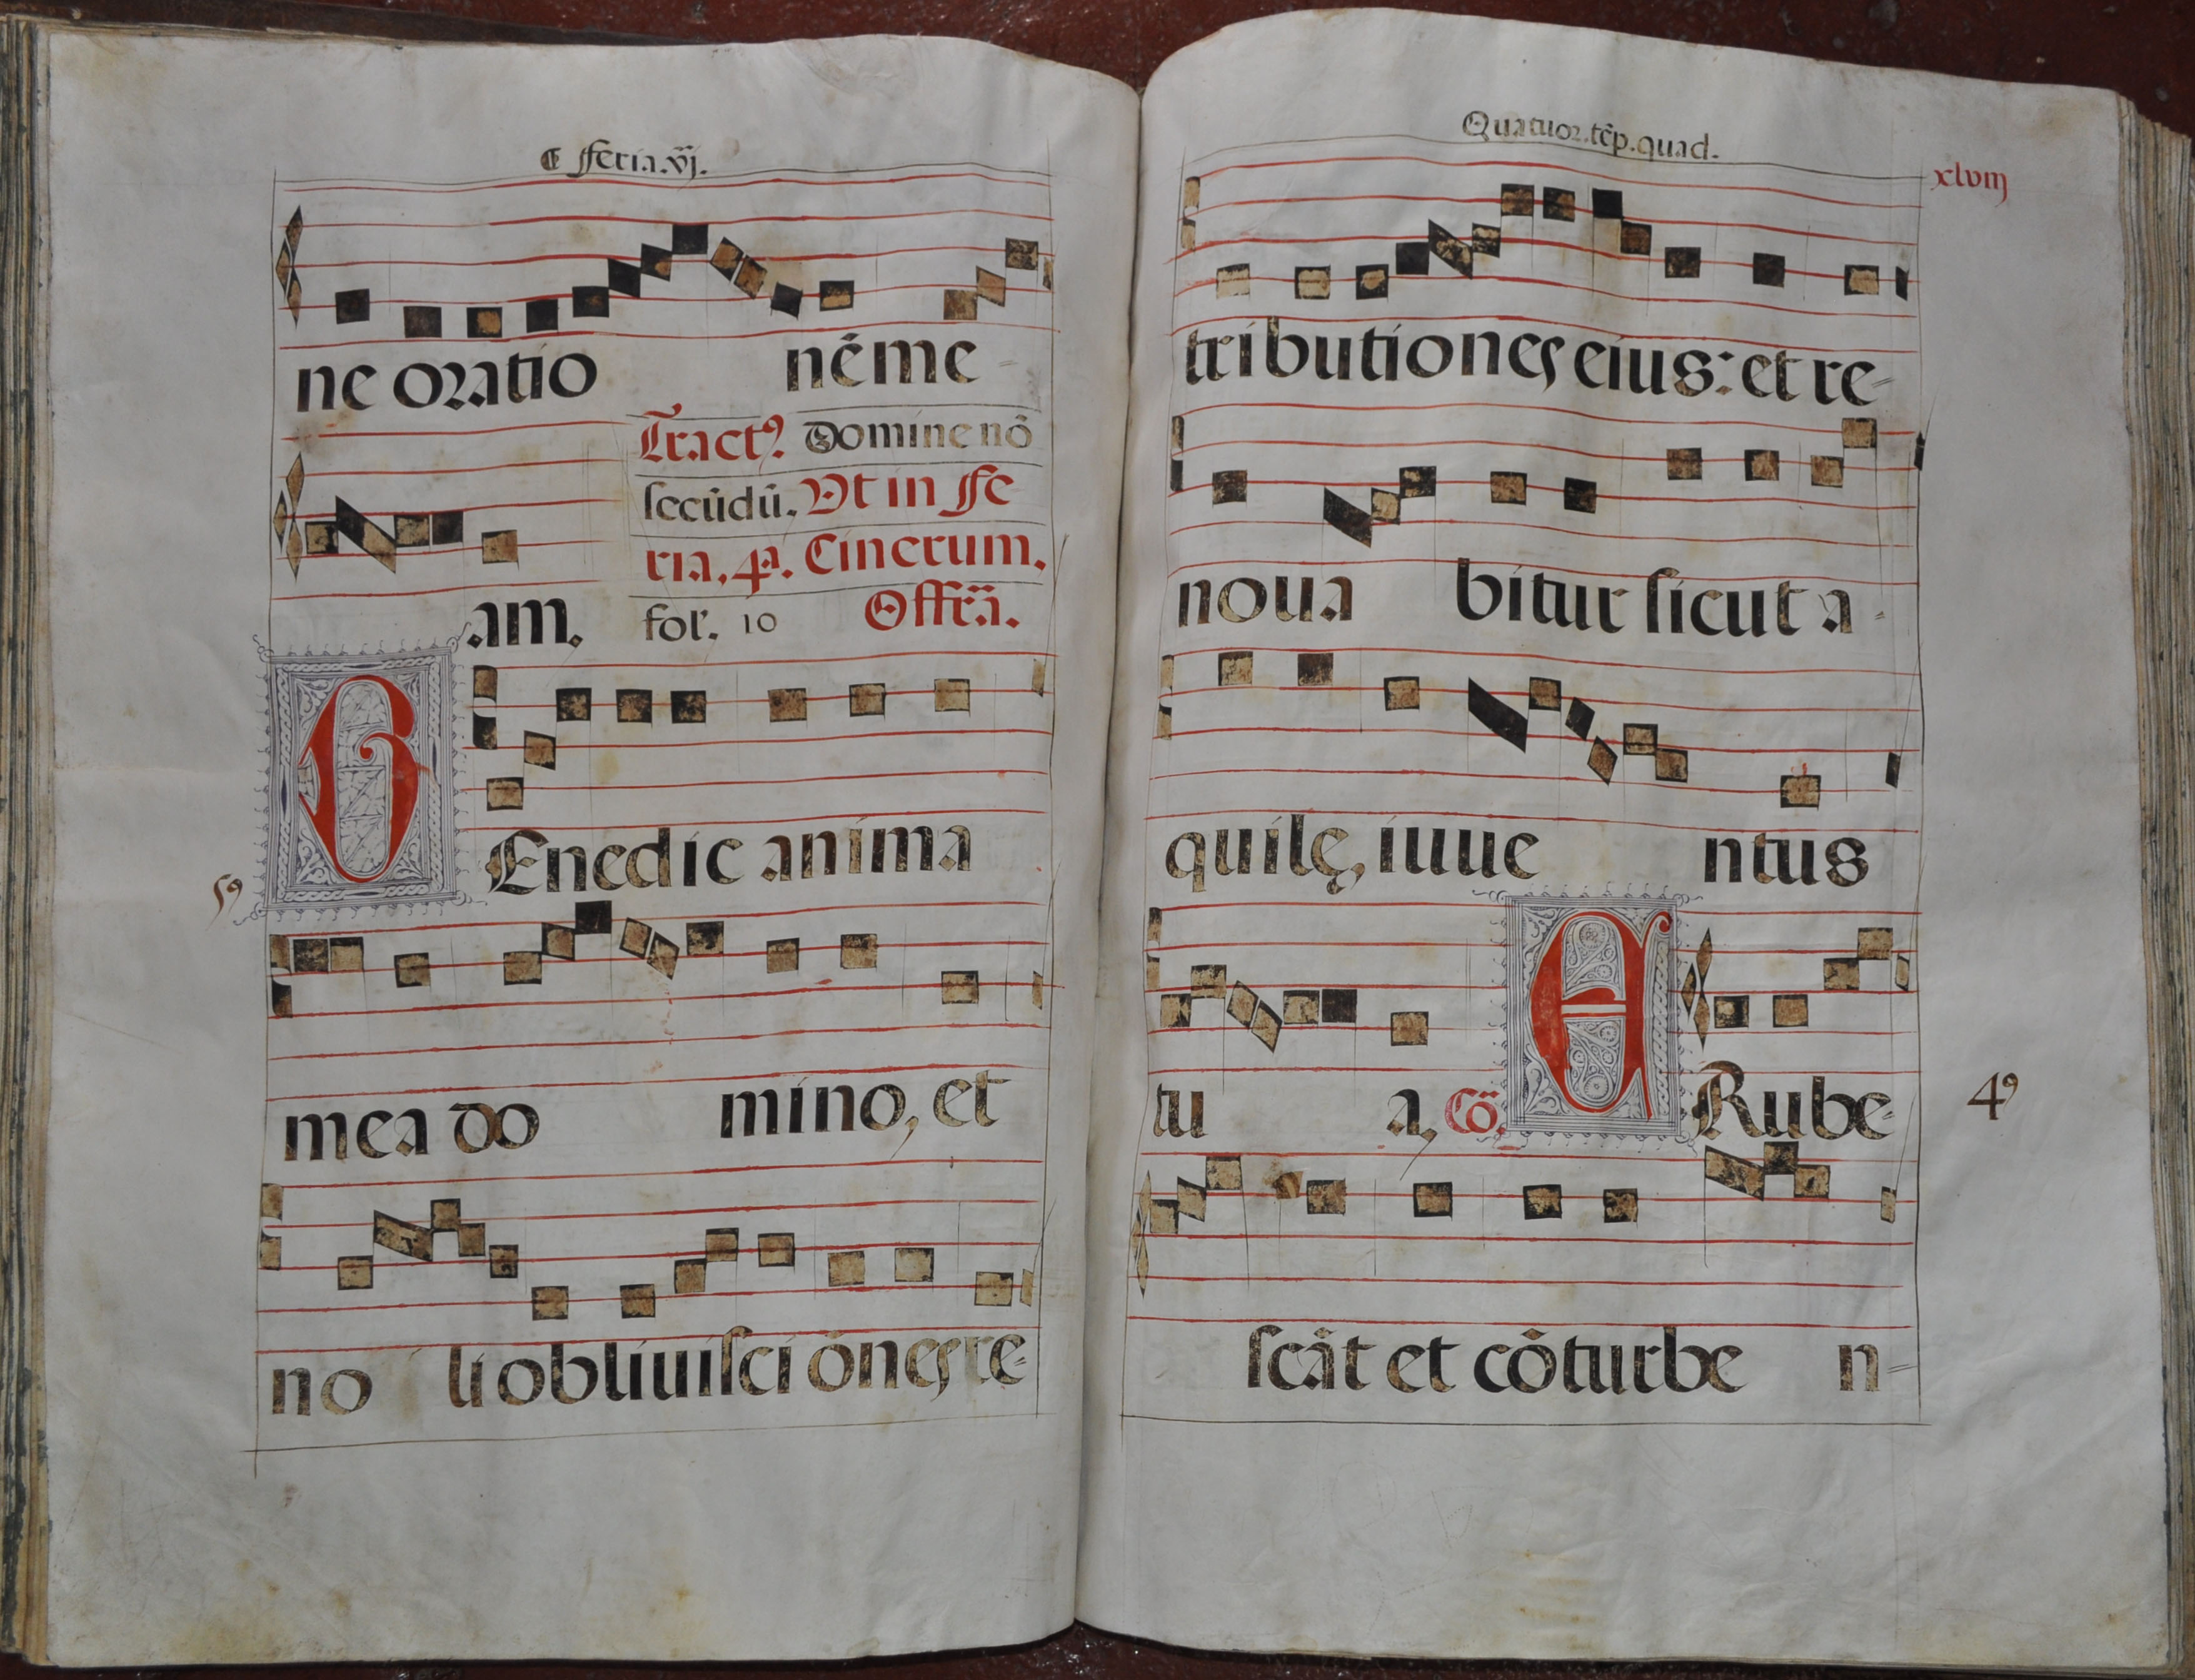 ¶ Feria.vj.
ne oratio nēme-
Tract9. Domine nō
secūdū. Vt in Fe
ria.4a. Cinerum.
am. fol. 10 Offrā.
BEnedic anima
59
mea do mino, et
no li obliuisci ōnes re-
Quatuor.tēp.quad.
xlviij
tributiones eius: et re-
noua bitur sicut a-
quilę, iuue ntus
tu a, Cō. ERube-
49
scāt et cōturbe n-